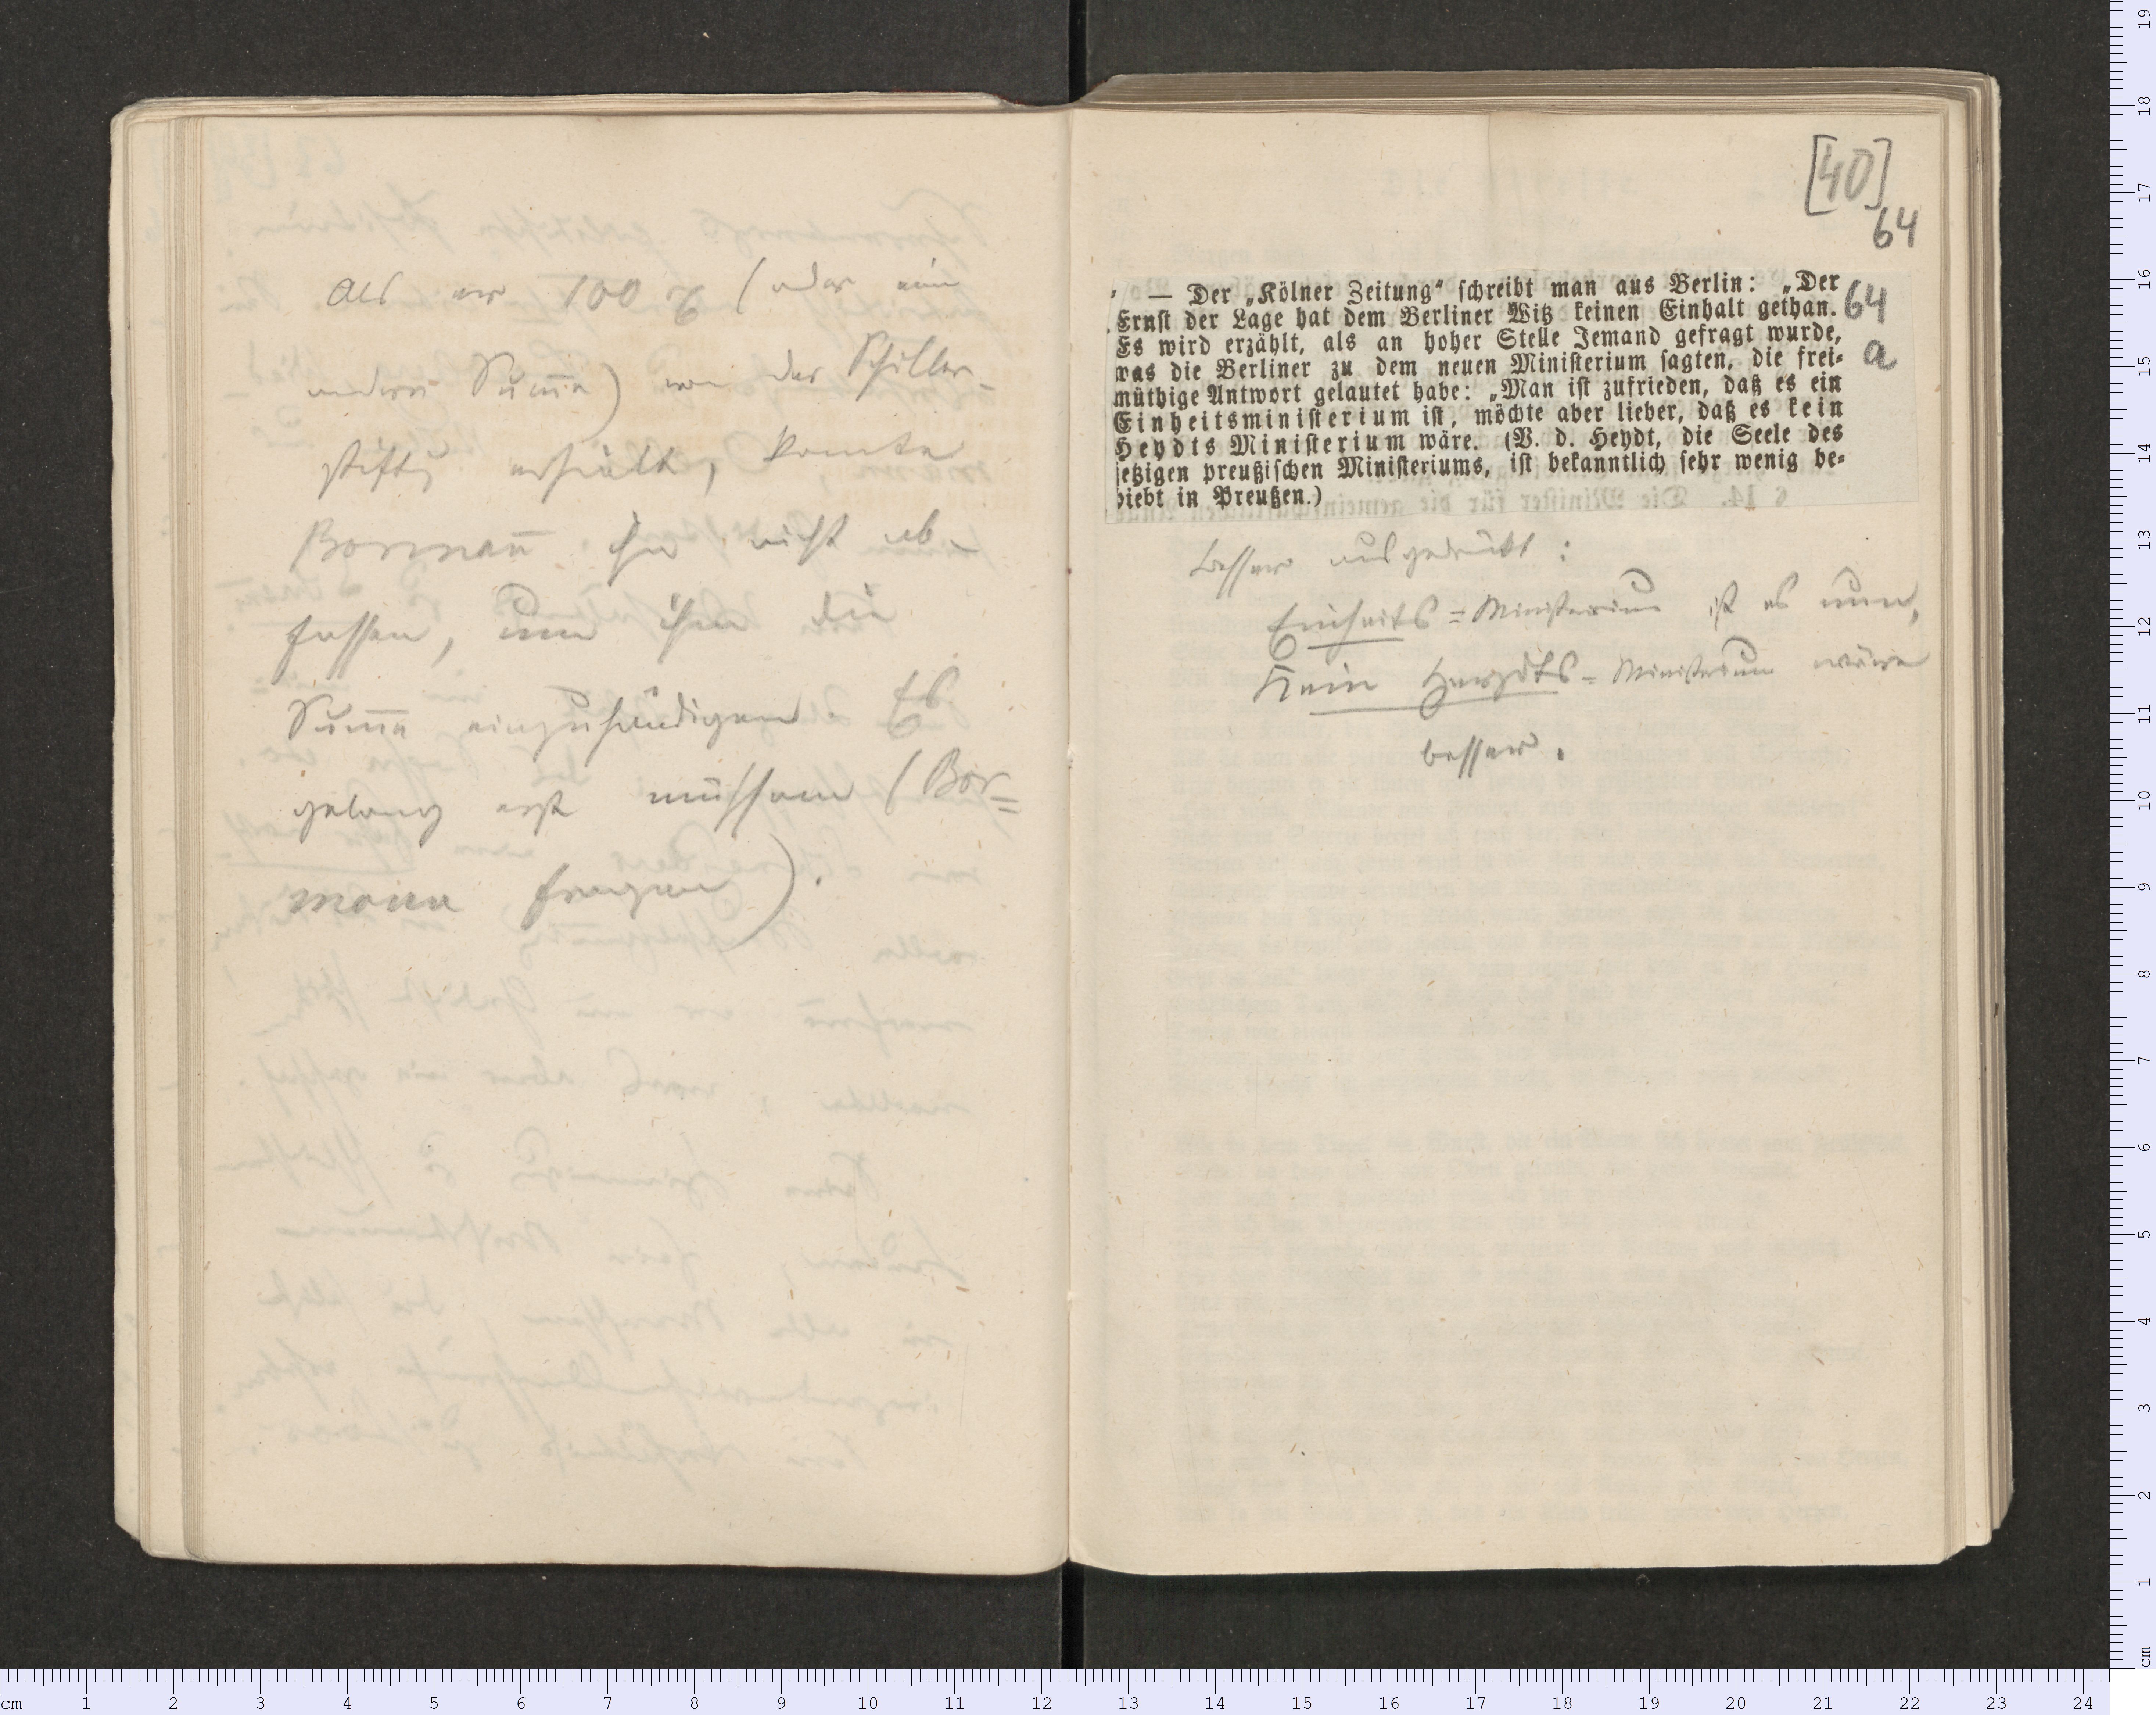 Als er 100 rℓ (oder eine
andere Summe) von der Schiller-
stiftg erhielt, konnte
Borman̅ ihn nicht ab-
fassen, um ihm die
Sum̅e einzuhändigen. Es
gelang erst mühsam (Bor=
mann fragen).
[40]
64
— Der „Kölner Zeitung“ schreibt man aus Berlin: „Der
Ernst der Lage hat dem Berliner Witz keinen Einhalt gethan.
Es wird erzählt, als an hoher Stelle Jemand gefragt wurde,
was die Berliner zu dem neuen Ministerium sagten, die frei-
müthige Antwort gelautet habe: „Man ist zufrieden, daß es ein
Einheitsministerium ist, möchte aber lieber, daß es kein
Heydts Ministerium wäre. (V. d. Heydt, die Seele des
jetzigen preußischen Ministeriums, ist bekanntlich sehr wenig be-
liebt in Preußen.)
64
a
Besser ausgedrückt:
Einheits=Ministerium ist es nun,
Kein Heydts=Ministerium wäre
besser.